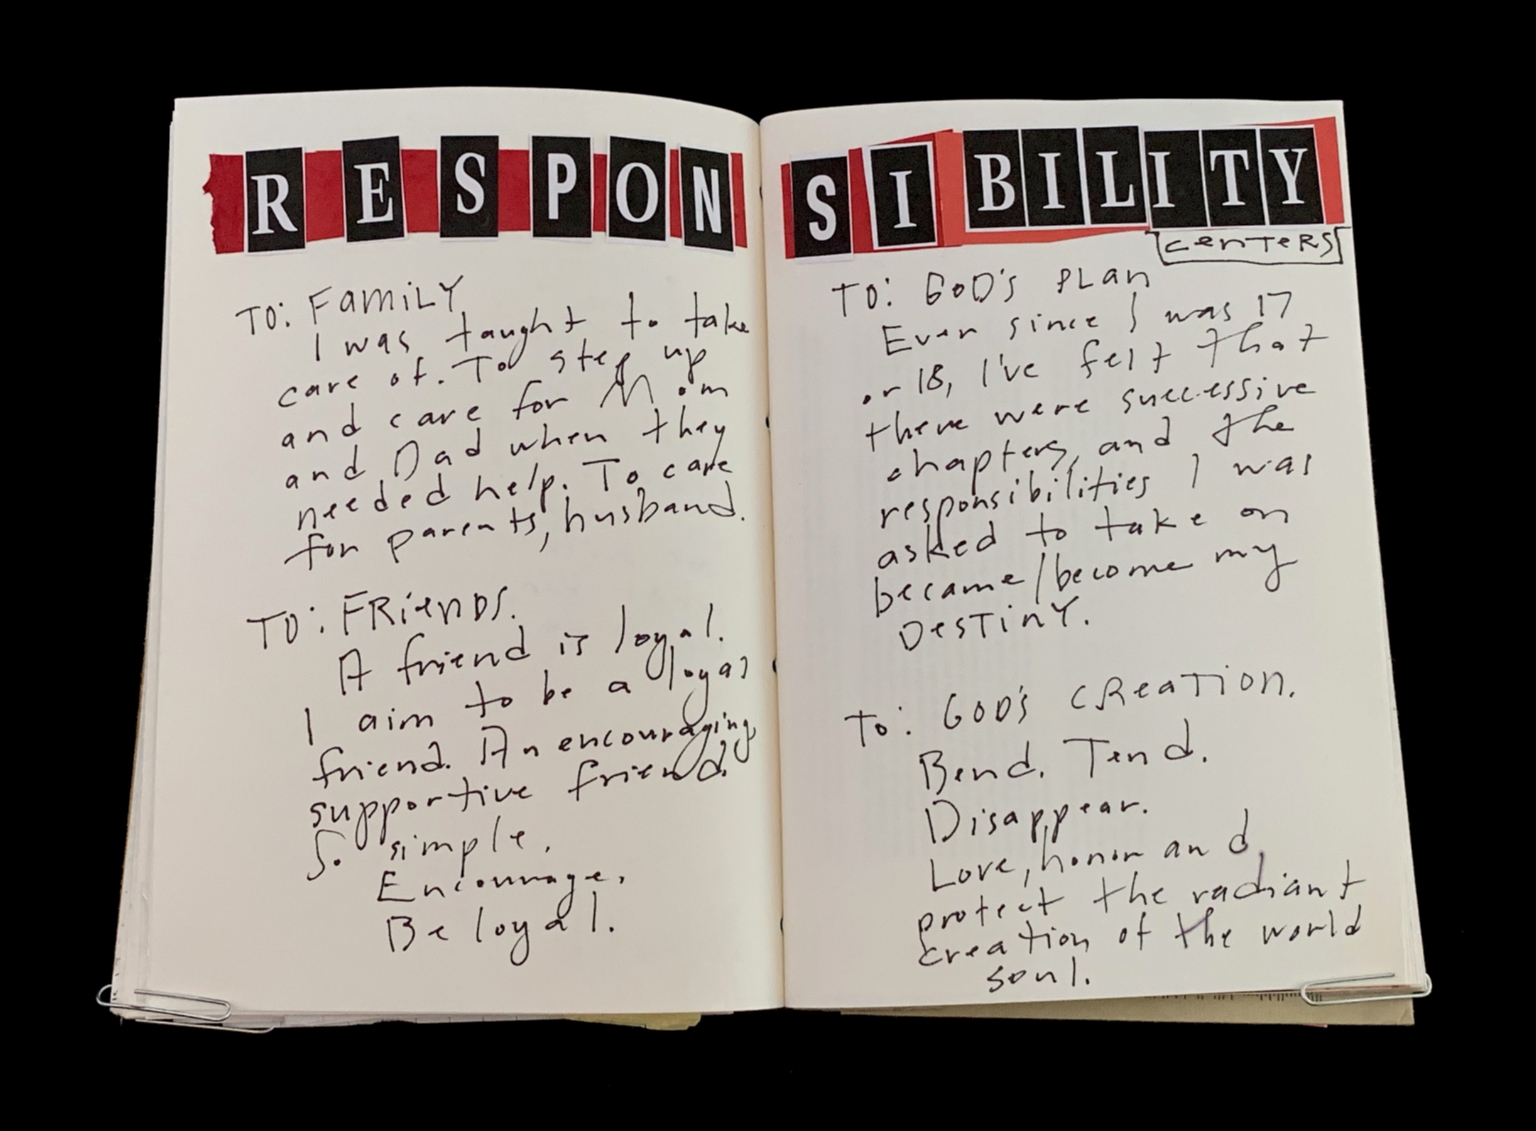 RESPONSIBILITY
centers
TO: FAMILY
I was taught to take
care of. To step up
and care for Mom
and Dad when they
needed help. To care
for parents, husband.
TO: FRIENDS.
A friend is loyal.
I aim to be a loyal
friend. An encouraging,
supportive friend.
So simple.
Encourage.
Be loyal.
TO: GOD'S PLAN
Ever since I was 17
or 18, I've felt that
there were successive
chapters, and the
responsibilities I was
asked to take on
became/become my
DESTINY.
To: GOD'S CREATION.
Bend. Tend.
Disappear.
Love, honor and
protect the radiant
creation of the world
soul.